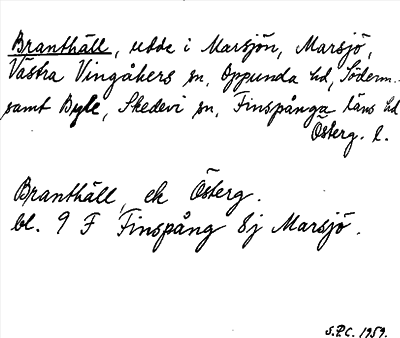 Branthäll, udde i Marsjön, Marsjö,
Västra Vingåkers sn, Oppunda hd, Söderm.
samt Byle, Skedevi sn, Finspånga läns hd
Österg. l.
Branthäll, ek Österg.
bl. 9 F Finspång Sj Marsjö.
S.P.C. 1959.